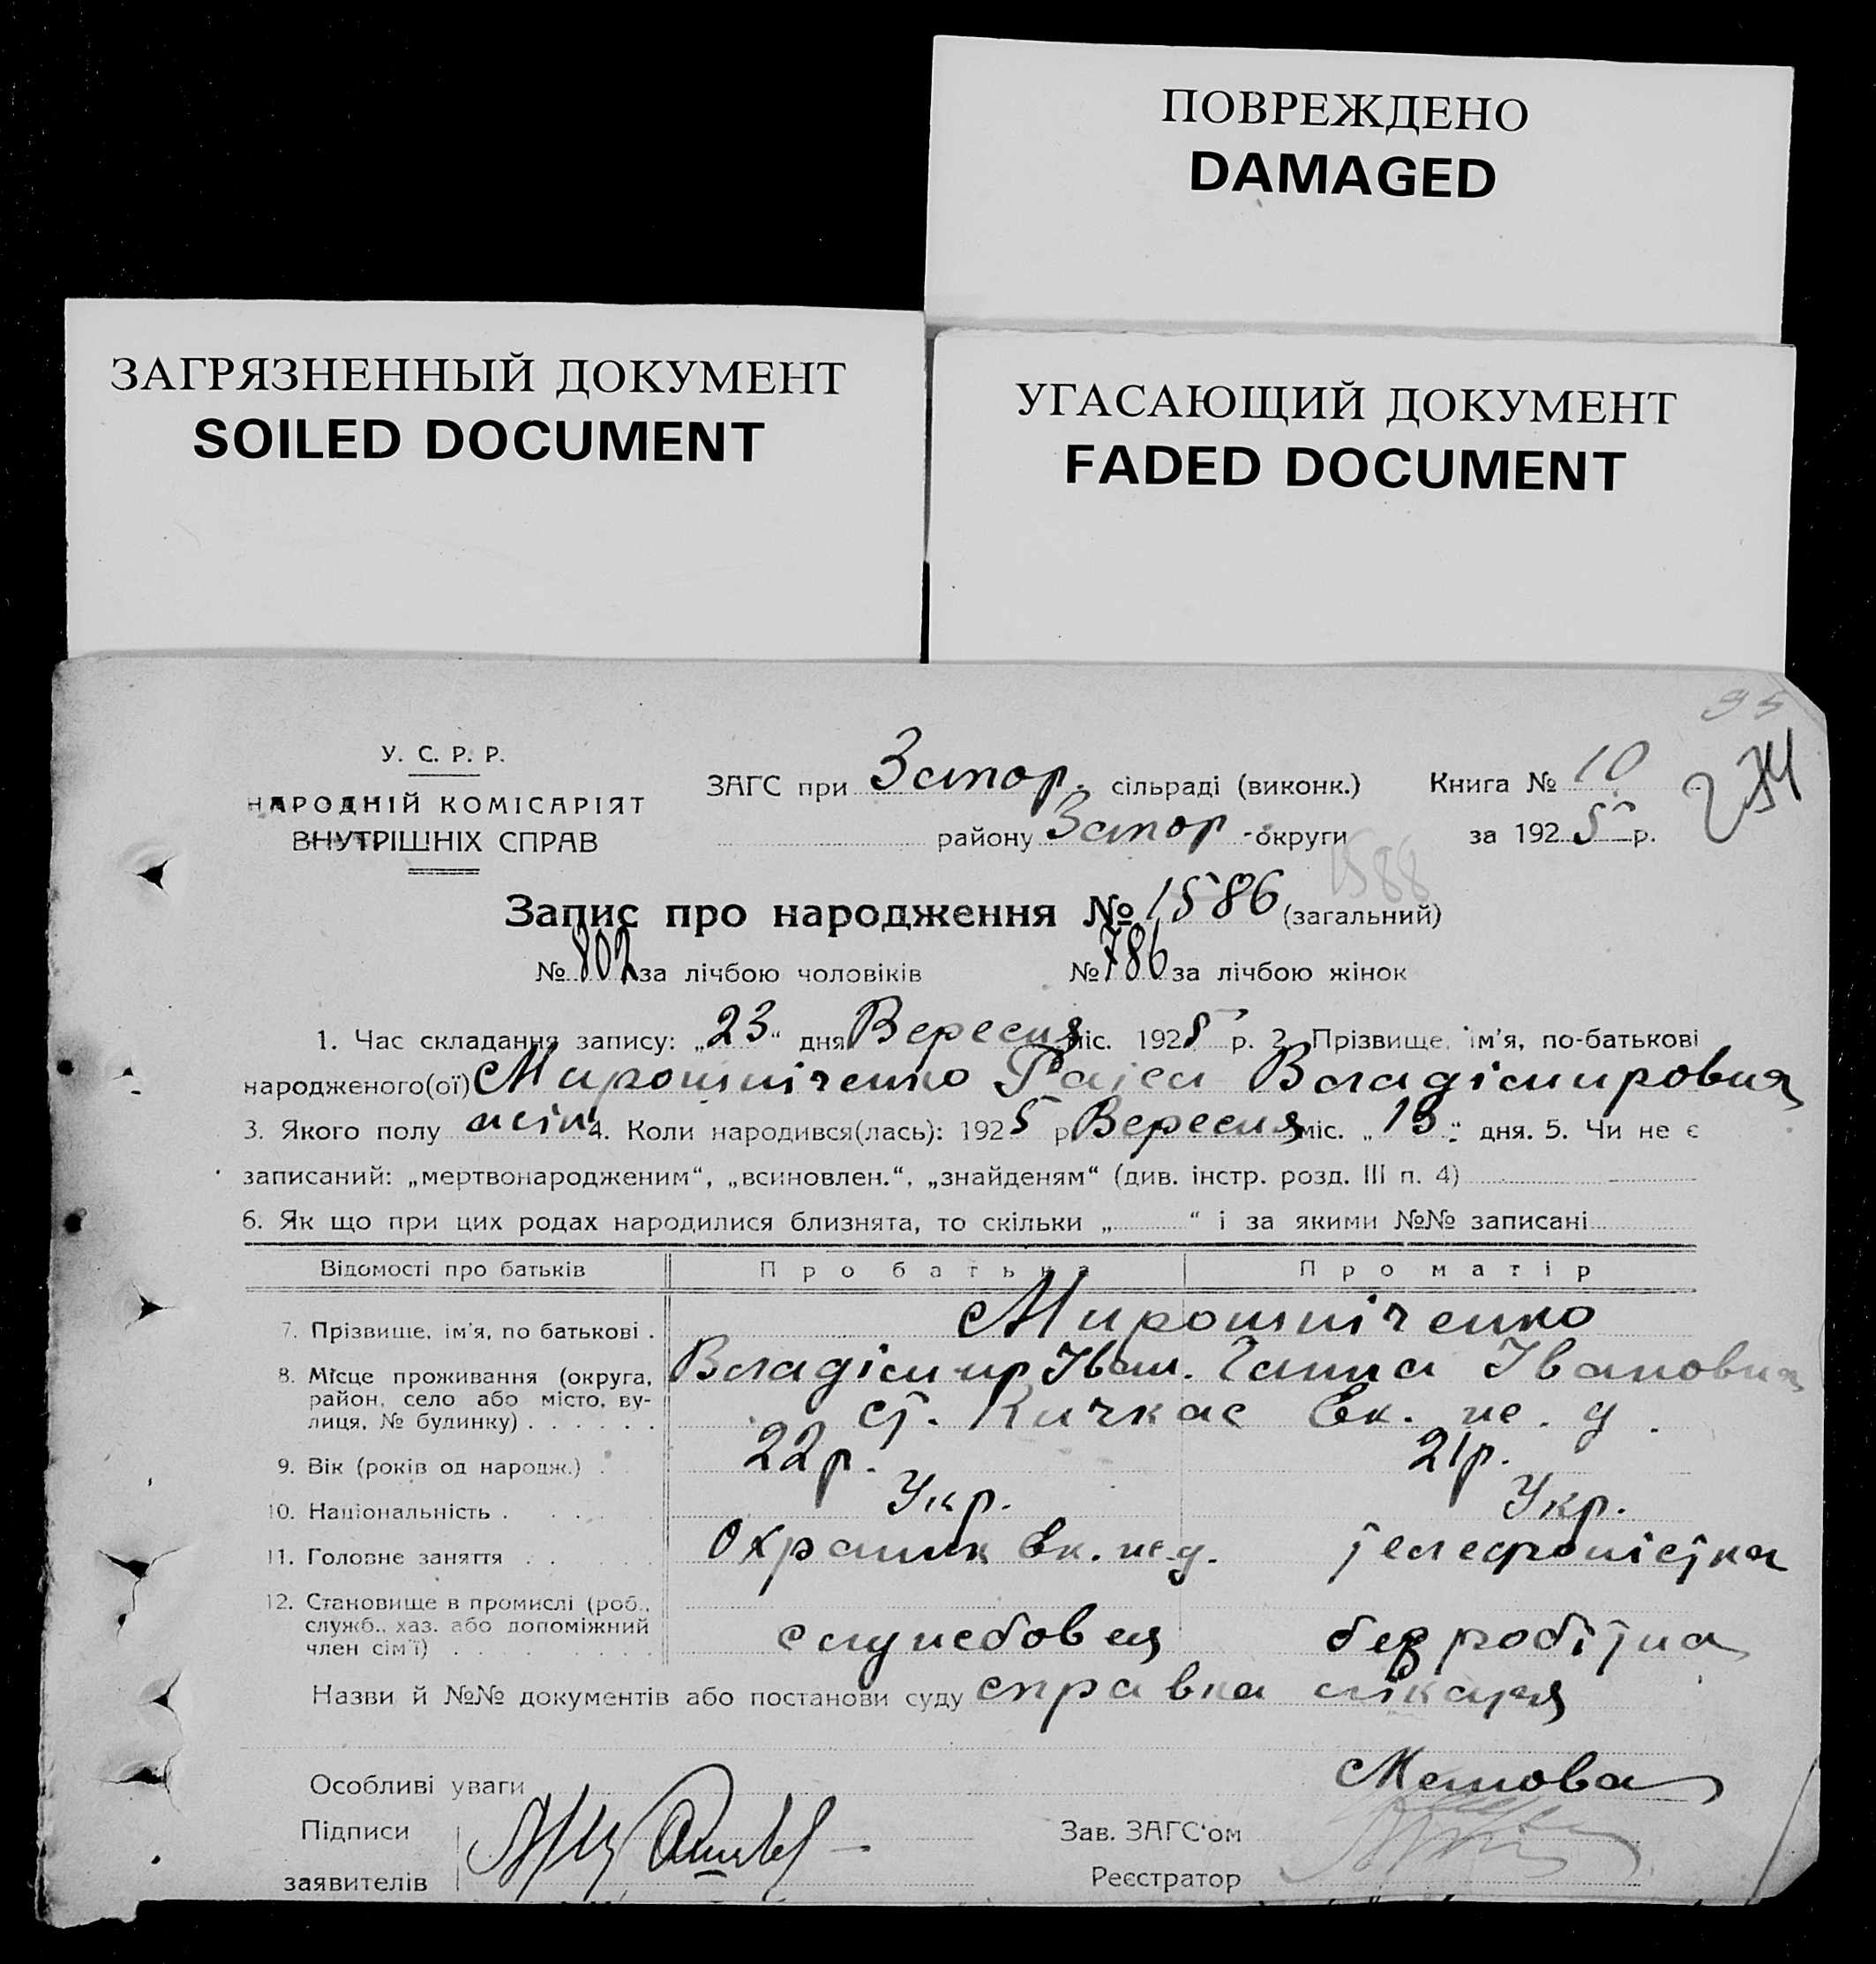 ПОВРЕЖДЕНО
DAMAGED
ЗАГРЯЗНЕННЫЙ ДОКУМЕНТ
SOILED DOCUMENT
УГАСАЮЩИЙ ДОКУМЕНТ
FADED DOCUMENT
95
274
У. С. Р. Р.
НАРОДНІЙ КОМІСАРІЯТ
ВНУТРІШНІХ СПРАВ
ЗАГС при Запор. сільраді (виконк.) Книга № 10
району Запор. округи за 1925 р.
1588
Запис про народження № 1586 (загальний)
№ 802 за лічбою чоловіків № 786 за лічбою жінок
1. Час складання запису: „23“ дня Вересня міс. 1925 р. 2. Прізвище, ім'я, по-батькові
народженого(ої) Мирошніченко Раіса Владіміровна
3. Якого полу жін. 4. Коли народився(лась): 1925 р. Вересня міс. „13“ дня. 5. Чи не є
записаний: „мертвонародженим“, „всиновлен.“, „знайденям“ (див. інстр. розд. III п. 4)
6. Як що при цих родах народилися близнята, то скільки „ “ і за якими №№ записані
Відомості про батьків Про батька Про матір
7. Прізвище, ім'я, по батькові . Мирошніченко
Владімир Іван. Ганна Івановна
8. Місце проживання (округа, район, село або місто, вулиця, № будинку) . . . . . . ст. Кичкас Ек. ж. д.
9. Вік (років од народж.) . 22 р. 21 р.
10. Національність . . . . Укр. Укр.
11. Головне заняття . . . Охраник Ек. ж. д. телефоністка
12. Становище в промислі (роб., служб., хаз. або допоміжний член сім'ї) . . . . . . . . службовец безробітна
Назви й №№ документів або постанови суду справка лікаря
Особливі уваги
Підписи
заявителів
Зав. ЗАГС'ом
Реєстратор